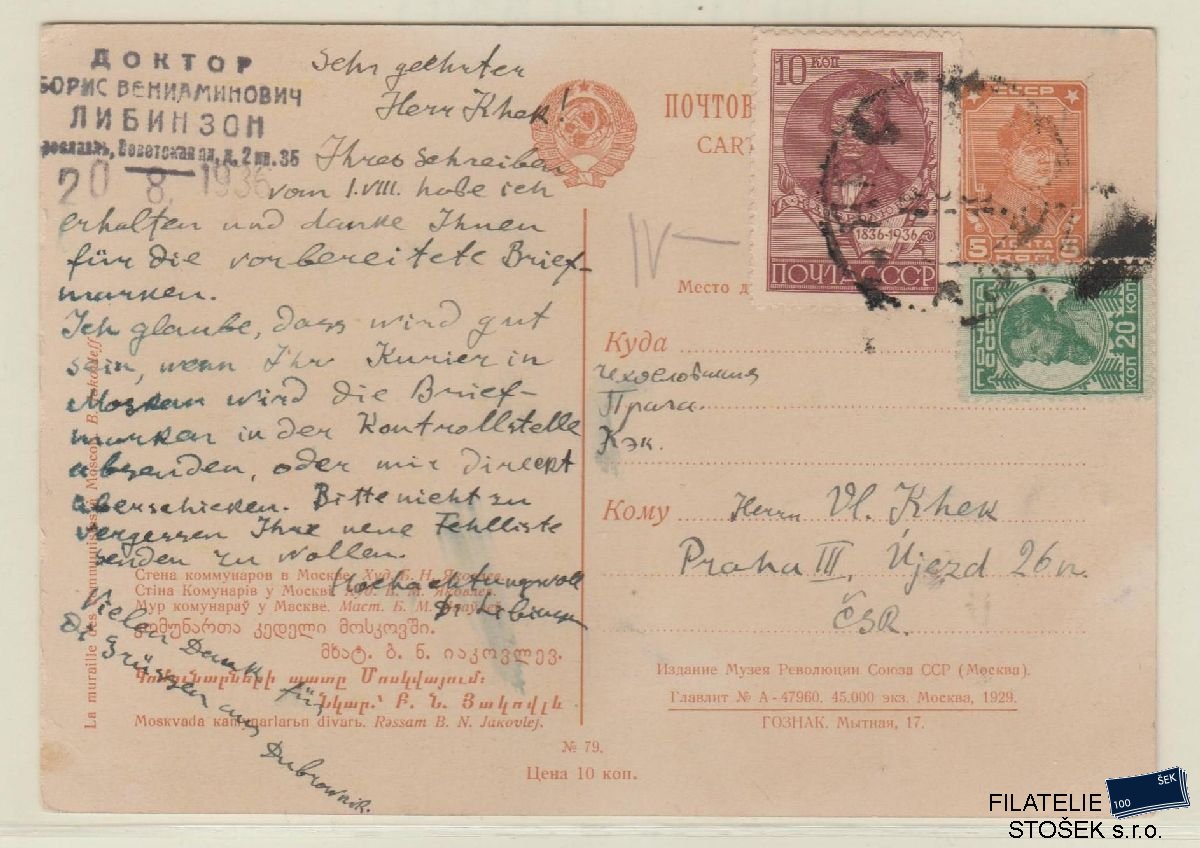 ДОКТОР
БОРИС ВЕНИАМИНОВИЧ
ЛИБИНЗОН
рославль, Советская пл, д. 2 кв. 35
20 8. 1936
Sehr geehrter
Herr Khek!
Ihres Schreiben
vom 1.VIII. habe ich
erhalten und danke Ihnen
für die vorbereitete Brief-
marken.
Ich glaube, dass wird gut
sein, wenn Ihr Kurier in
Moskau wird die Brief-
marken in der Kontrollstelle
absenden, oder mir direckt
überschicken. Bitte nicht zu
vergessen Ihre neue Fehlliste
senden zu wollen.
Hochachtungsvoll
Dr Libinson
Vielen Dank für
Di Grüssen aus Dubrownik.
La muraille des communistes à Moscou. B. Jakovleff
Стена коммунаров в Москве. Худ. Б. Н. Яковлев.
Стіна Комунарів у Москві. Худ. Б. М. Яковлєв.
Мур комунараў у Маскве. Маст. Б. М. Якаўлеў.
კომუნართა კედელი მოსკოვში.
მხატ. ბ. ნ. იაკოვლევ.
Կոմունարների պատը Մոսկվայում:
Նկար.՝ Բ. Ն. Յակովլև
Moskvada kommunarlarьn divarь. Rəssam B. N. Jakovlej.
№ 79.
Цена 10 коп.
ПОЧТОВ
CART
IV —
Место д
10 КОП
1836-1936
ПОЧТА СССР
СССР
5 ПОЧТА 5
КОП
ПОЧТА
СССР
20 КОП
КОП
Куда
Чехословакия
Прага.
Кэк.
Кому
Herrn Vl. Khek
Praha III, Újezd 26n.
ČSR.
Издание Музея Революции Союза ССР (Москва).
Главлит № А-47960. 45.000 экз. Москва, 1929.
ГОЗНАК. Мытная, 17.
100 ŠEK
FILATELIE
STOŠEK s.r.o.